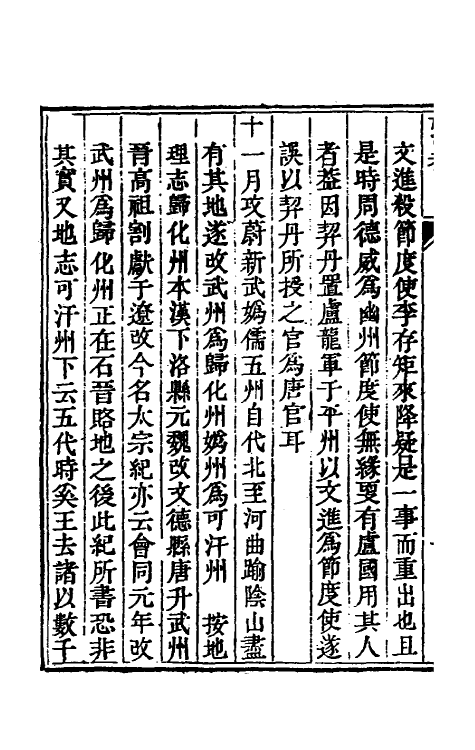 文進殺節度使李存矩來降疑是一事而重出也且
是時周德威爲幽州節度使無緣更有盧國用其人
者葢因契丹置盧龍軍于平州以文進爲節度使遂
誤以契丹所授之官爲唐官耳
十一月攻蔚新武嬀儒五州自代北至河曲踰陰山盡
有其地遂改武州爲歸化州嬀州爲可汗州　按地
理志歸化州本漢下洛縣元魏改文德縣唐升武州
晉高祖割獻于遼改今名太宗紀亦云會同元年改
武州爲歸化州正在石晉賂地之後此紀所書恐非
其實又地志可汗州下云五代時奚王去諸以數千